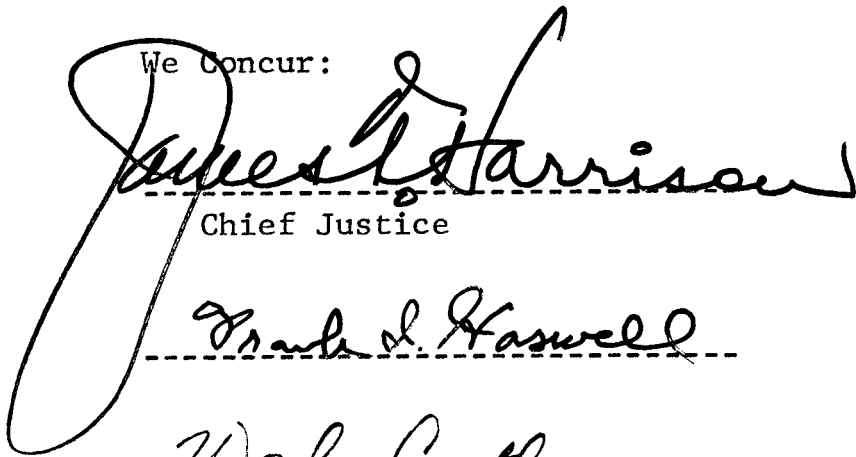 We Concur:
James T. Harrison
Chief Justice
Frank I. Haswell